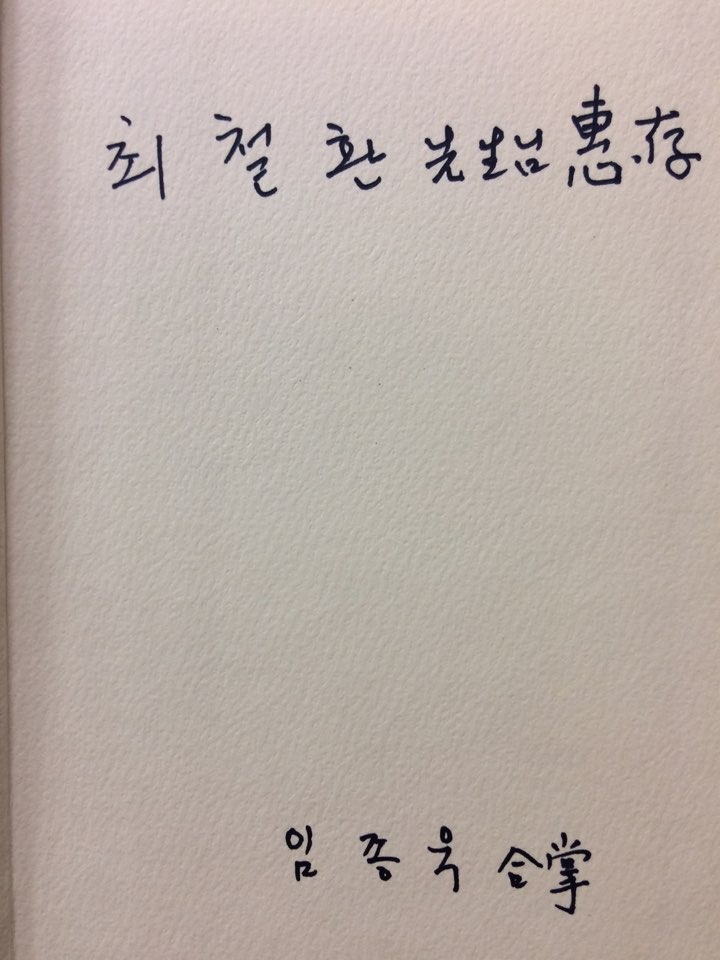 최 철 환 先生님 惠存
임 종 욱 合掌